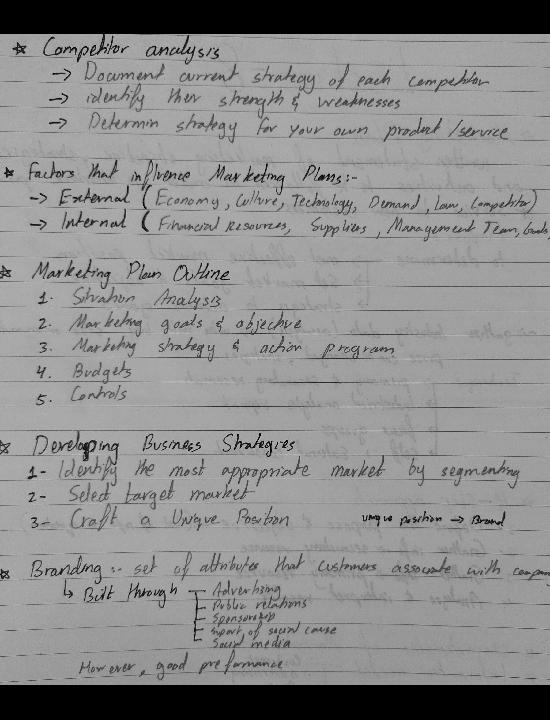 ☆ Competitor analysis
→ Document current strategy of each competitor
→ identify ther strength & weaknesses
→ Determin strategy for your own product / service
☆ Factors that influence Marketing Plans:-
→ External ( Economy, Culture, Technology, Demand, Law, Competitor)
→ Internal ( Financial Resources, Suppliers, Management Team, Goals
☆ Marketing Plan Outline
1. Sitvation Analysis
2. Marketing goals & objective
3. Marketing strategy & action program
4. Budgets
5. Controls
☆ Developing Business Strategies
1- Identify the most appropriate market by segmenting
2- Select target market
3- Craft a Unique Position unique position → Brand
☆ Branding :- set of attributes that customers associate with company
↳ Built through Advertising
Public relations
Sponsorship
Suport of social cause
Social media
However, good preformance